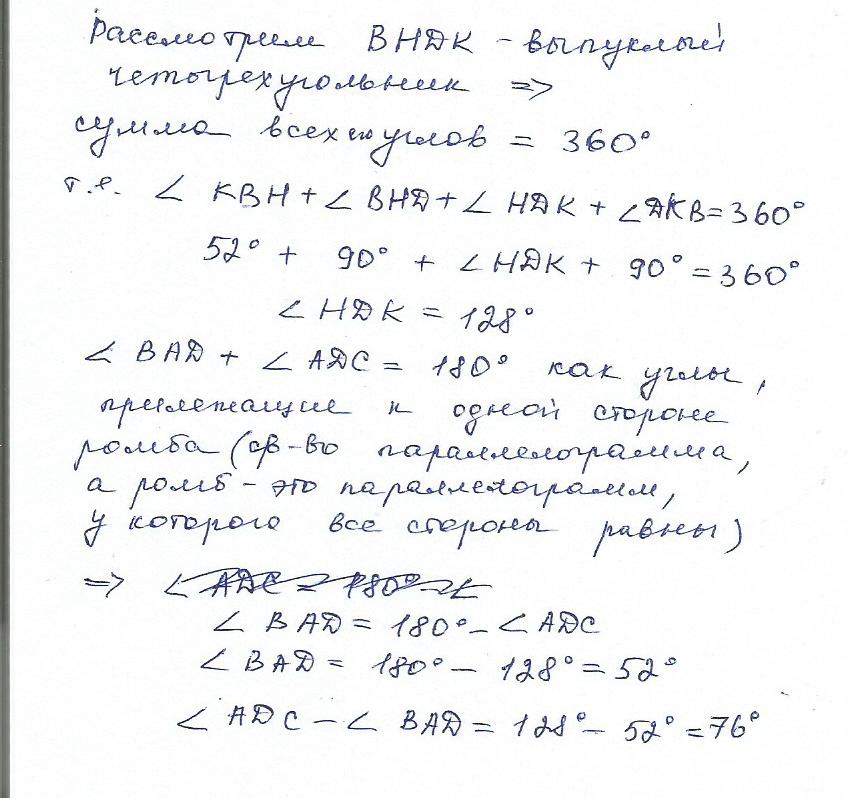 Рассмотрим ВНДК - выпуклый
четырехугольник =>
сумма всех его углов = 360°
т.е. ∠ КВН + ∠ ВНД + ∠ НДК + ∠ДКВ = 360°
52° + 90° + ∠НДК + 90° = 360°
∠ НДК = 128°
∠ ВАД + ∠ АДС = 180° как углы,
прилежащие к одной стороне
ромба (св-во параллелограмма,
а ромб - это параллелограмм,
у которого все стороны равны)
=> ∠ АДС = 180° - ∠
∠ ВАД = 180° - ∠ АДС
∠ ВАД = 180° - 128° = 52°
∠ АДС - ∠ ВАД = 128° - 52° = 76°